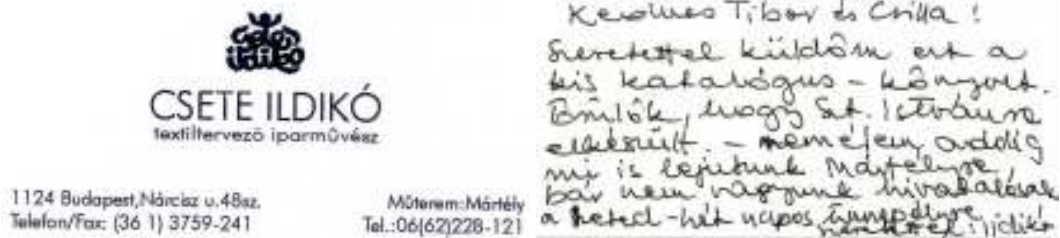 csete ildikó
CSETE ILDIKÓ
textiltervező iparművész
1124 Budapest,Nárcisz u.48sz.
Telefon/Fax: (36 1) 3759-241
Műterem:Mártély
Tel.:06(62)228-121
Kedves Tibor és Csilla!
Szeretettel küldöm ezt a
kis katalógus-könyvet.
Örülök, hogy Szt. Istvánra
elkészült. – remélem, addig
mi is lejutunk Mártélyra,
bár nem vagyunk hivatalosak
a heted-hét napos ünnepélyre
szeretettel: Ildikó